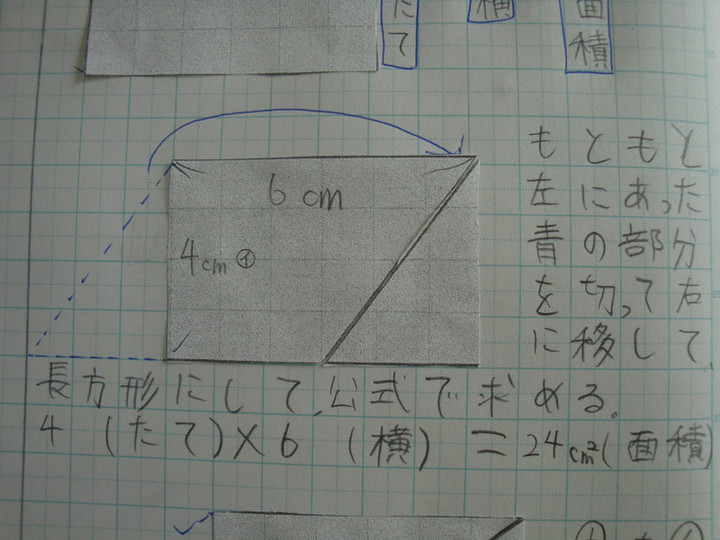 たて
横
面積
6 cm
4cm ㋑
もともと
左にあった
青の部分
を切って右
に移して、
長方形にして、公式で求める。
4 (たて)×6 (横) = 24cm²(面積)